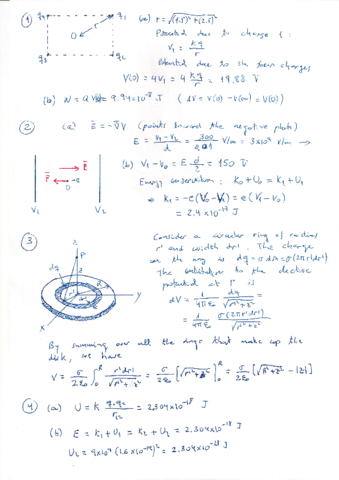 ①
q₄ q₁
O r
q₃ q₂
(a) r = √(1.5)² + (2.5)²
Potential due to charge 1:
V₁ = kq/r
Potential due to the four charges
V(0) = 4V₁ = 4 kq/r =
(b) W = Q
②
(a) E = -∇V (points toward the negative plate)
E = V₁-V₂/d = 300/0.01 V/m = 3x10⁴ V/m →
E
F -e
V₁ V₂
(b) V₁ - V₀ = E d/2 = 150 V
Energy conservation: K₀ + U₀ = K₁ + U₁
K₁ = -e(V₀-V₁) = e(V₁-V₀)
= 2.4 x 10⁻¹⁷ J
③
Consider a circular ring of radius
r' and width dr'. The charge
on the ring is dq = σ dA = σ(2πr'dr')
The contribution to the electric
potential at P is
z
P
dq
x
y
dV = 1/4πε₀ dq/√r'²+z² =
= 1/4πε₀ σ(2πr'dr')/√r'²+z²
By summing over all the rings that make up the
disk, we have
V = σ/2ε₀ ∫₀ᴿ r'dr'/√r'²+z² = σ/2ε₀ [√r'²+z²]₀ᴿ = σ/2ε₀ [√R²+z² - |z|]
④
(a) U = K q₁q₂/r₁₂ = 2.304x10⁻¹⁸ J
(b) E = K₁ + U₁ = K₂ + U₂ = 2.304x10⁻¹⁸ J
U₂ = 9x10⁹ (1.6x10⁻¹⁹)² = 2.304x10⁻²⁸ J